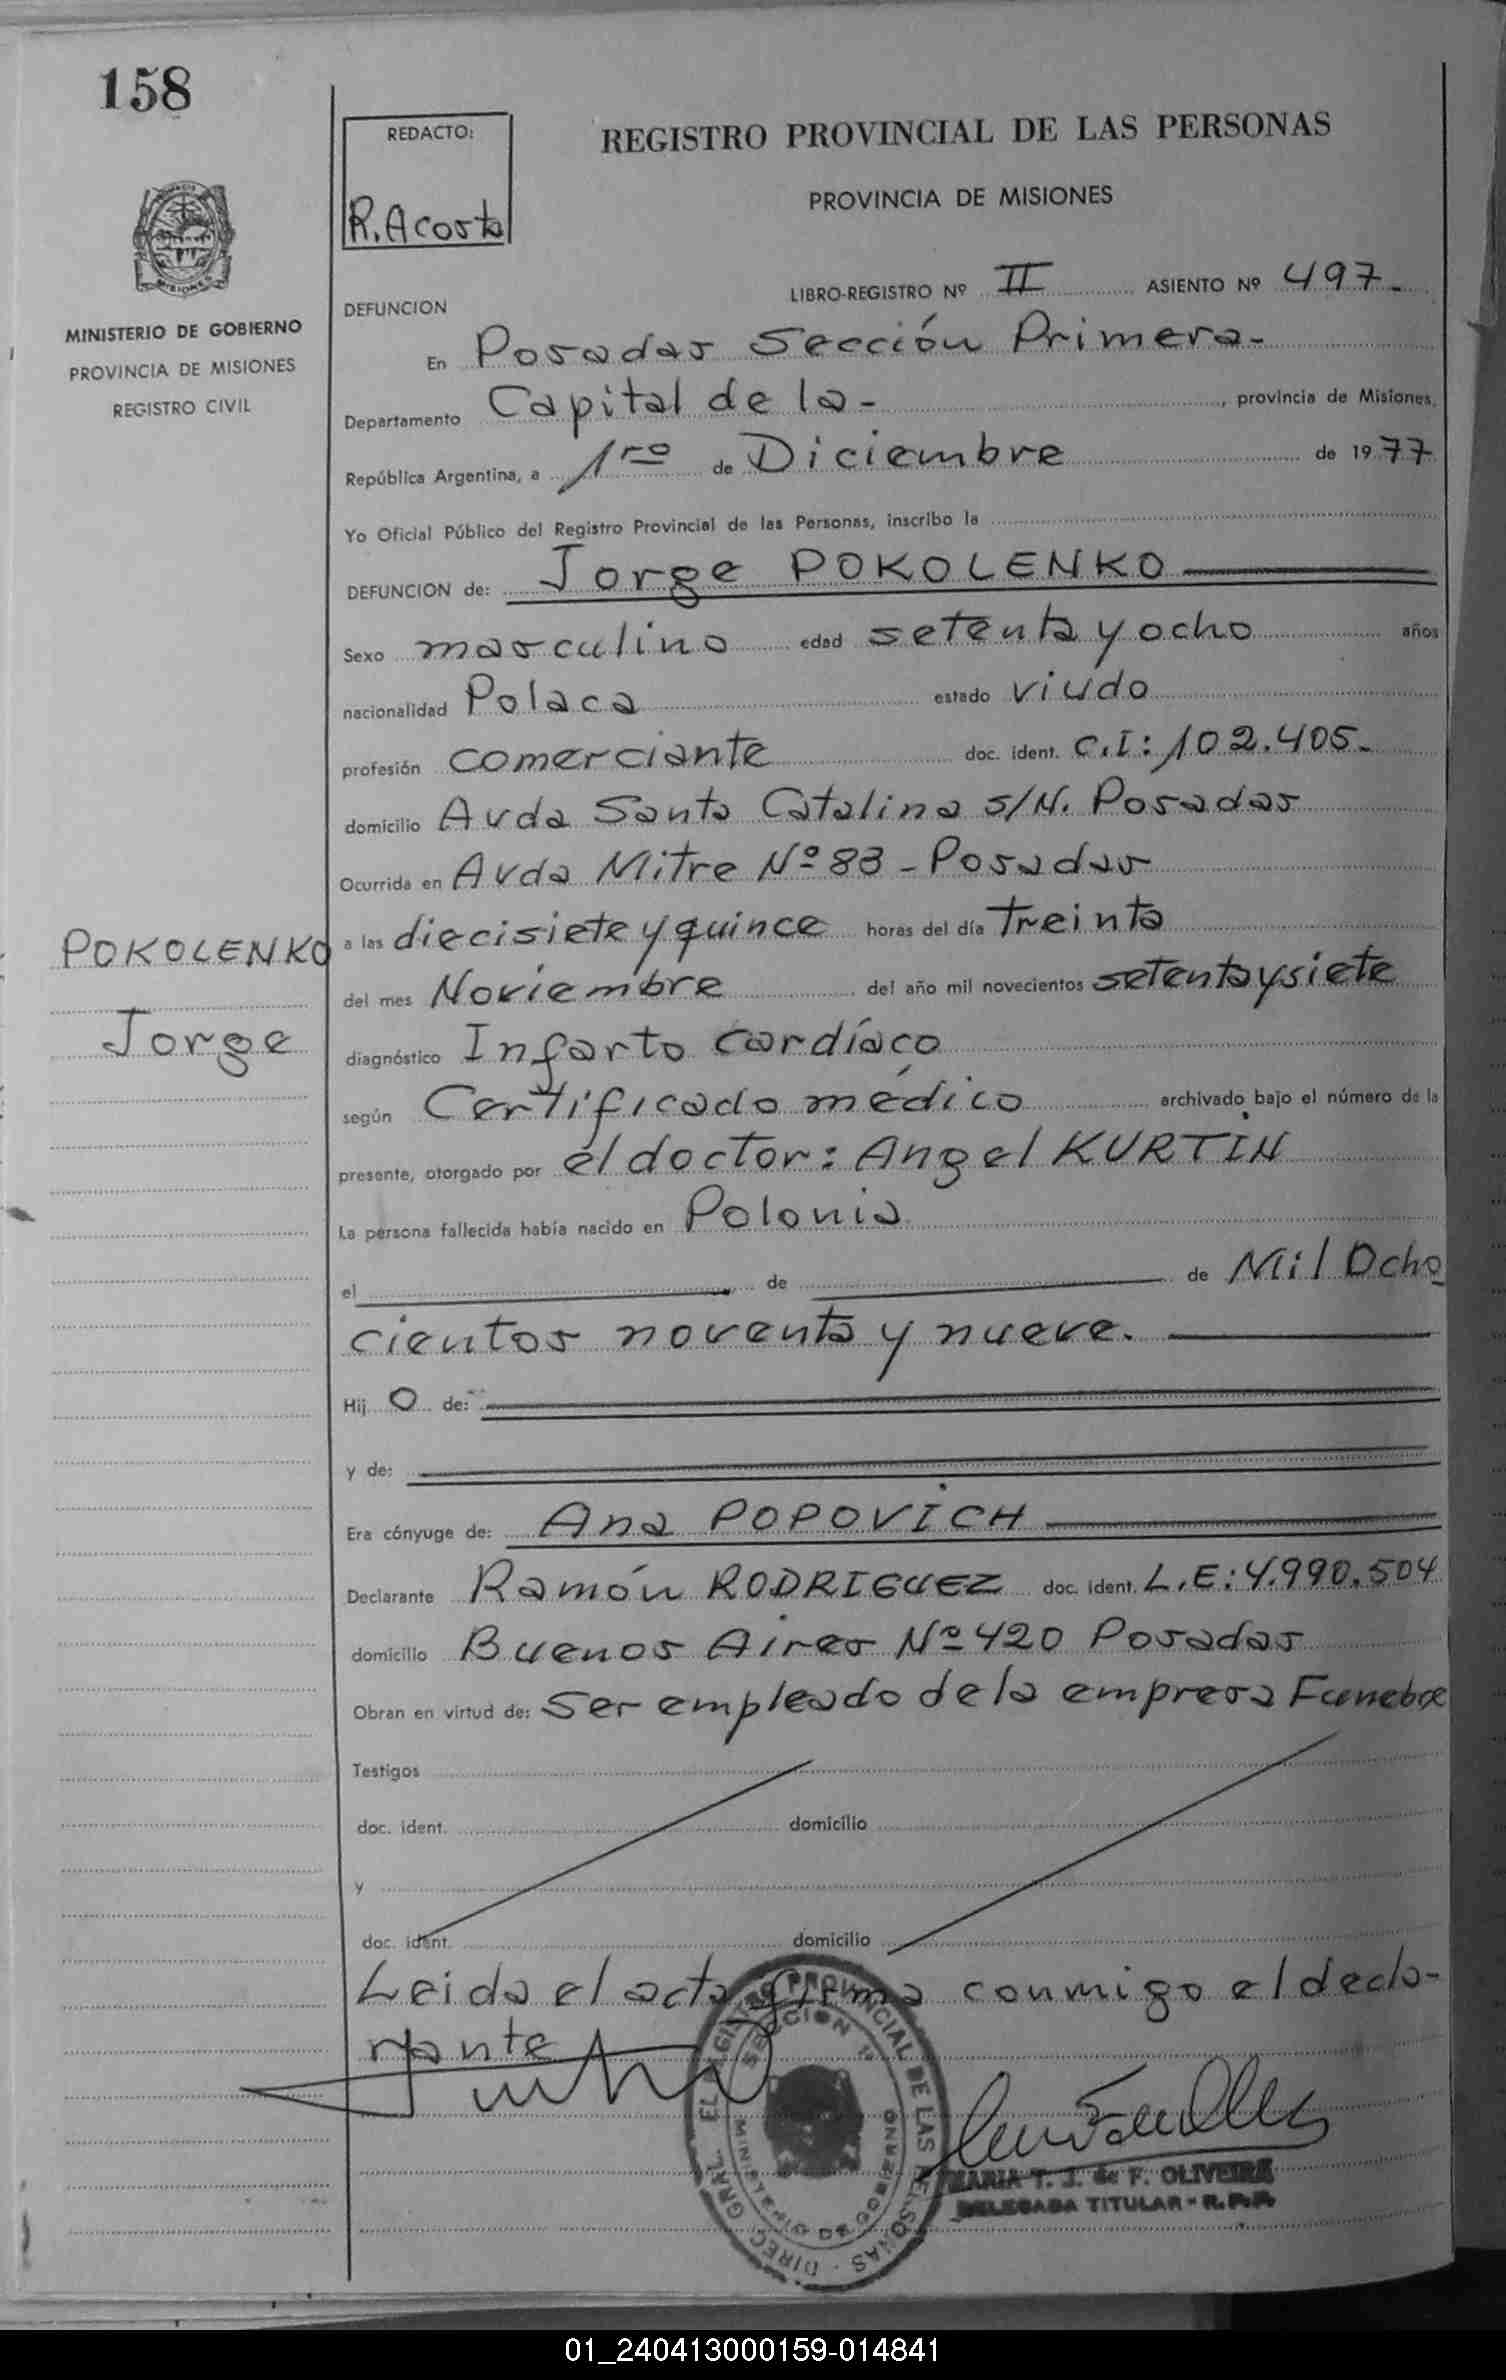 158
REDACTO:
R. Acosta
REGISTRO PROVINCIAL DE LAS PERSONAS
PROVINCIA DE MISIONES
MISIONES
MINISTERIO DE GOBIERNO
PROVINCIA DE MISIONES
REGISTRO CIVIL
LIBRO-REGISTRO Nº II ASIENTO Nº 497.-
DEFUNCION
En Posadas Sección Primera-
Departamento Capital de la- , provincia de Misiones,
República Argentina, a 1ro de Diciembre de 1977
Yo Oficial Público del Registro Provincial de las Personas, inscribo la
DEFUNCION de: Jorge POKOLENKO
Sexo masculino edad setenta y ocho años
nacionalidad Polaca estado viudo
profesión comerciante doc. ident. C.I: 102.405.-
domicilio Avda Santa Catalina s/N. Posadas
Ocurrida en Avda Mitre Nº 83 - Posadas
POKOLENKO
Jorge
a las diecisiete y quince horas del día treinta
del mes Noviembre del año mil novecientos setenta y siete
diagnóstico Infarto cardíaco
según Certificado médico archivado bajo el número de la
presente, otorgado por el doctor: Angel KURTIN
La persona fallecida había nacido en Polonia
el de de Mil Ocho
cientos noventa y nueve.
Hij o de:
y de:
Era cónyuge de: Ana POPOVICH
Declarante Ramón RODRIGUEZ doc. ident. L.E: 4.990.504
domicilio Buenos Aires Nº 420 Posadas
Obran en virtud de: Ser empleado de la empresa Funebre
Testigos
doc. ident. domicilio
y
doc. ident. domicilio
Leida el acta firma conmigo el decla-
rante
DIREC. GRAL. EL REGISTRO PROVINCIAL DE LAS PERSONAS
SECCION 1ª
MINISTERIO DE GOBIERNO
MARIA T. J. de F. OLIVEIRA
DELEGADA TITULAR - R.P.P.
01_240413000159-014841